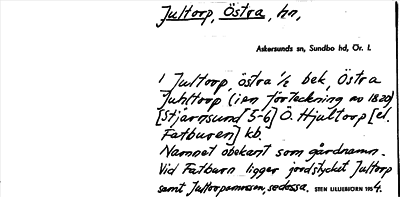 Jultorp, Östra, hn,
Askersunds sn, Sundbo hd, Ör. l.
1 Jultorp, östra 1/2 bek, Östra
Juhltorp (i en förteckning av 1820)
[Stjärnsund 5-6] Ö. Hjultorp [el.
Fatburen] kb.
Namnet obekant som gårdnamn.
Vid Fatburn ligger jordstycket Jultorp
samt Jultorpamossen, sedossa. STEN LILLIEBJÖRN 1954.